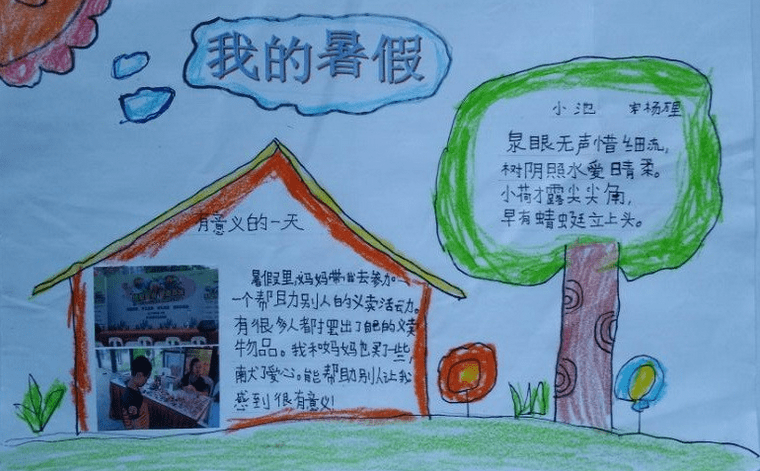 我的暑假
小池 宋杨理
泉眼无声惜细流，
树阴照水爱晴柔。
小荷才露尖尖角，
早有蜻蜓立上头。
有意义的一天
暑假里，妈妈带我去参加
一个帮助别人的义卖活动。
有很多人都拿出了自己的义卖
物品。我和妈妈也买了一些，
献了爱心。能帮助别人让我
感到很有意义!